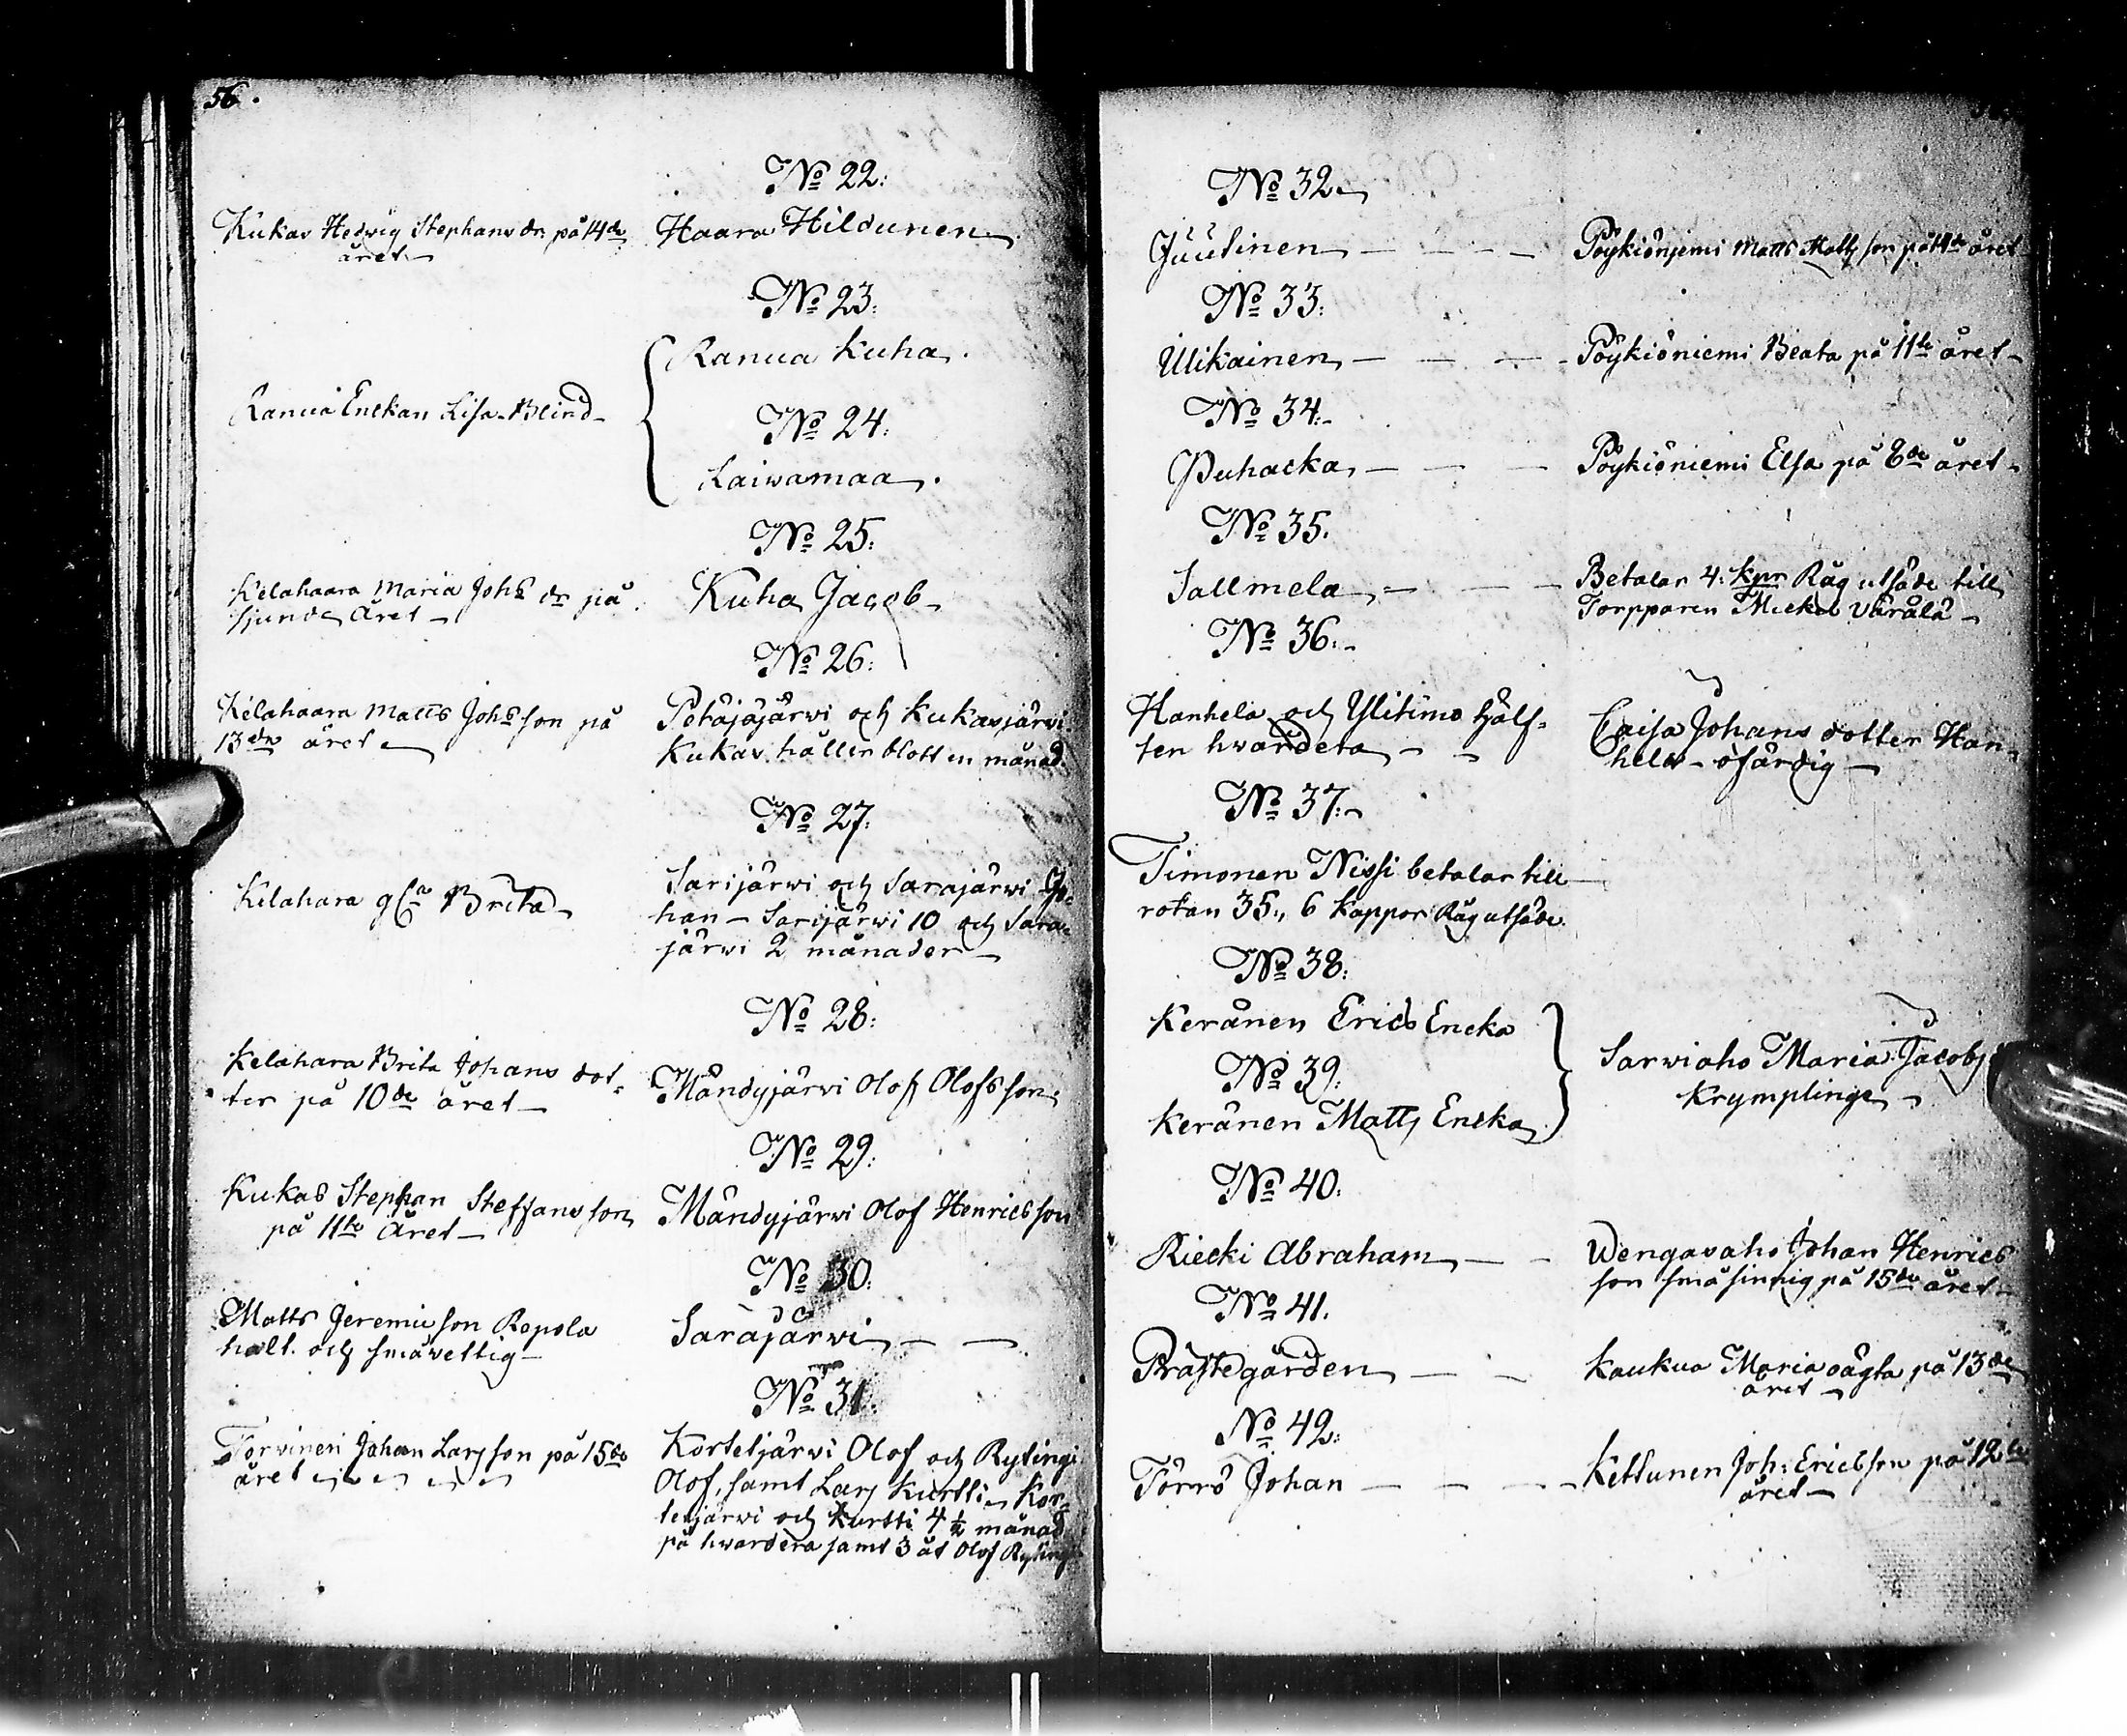 56.
No 22:
Kukas Hedvig Stephans dr. på 14de
året
Haara Hildunen
No 23:
Ranua Kuha.
Ranua Enckan Lisa Blind
No 24:
Laiwamaa.
No 25:
Kelahaara Maria Johs dr på
sjunde Året
Kuha Jacob
No 26:
Kelahaara Matts Johs son på
13de året
Petäjäjärwi och Kukasjärwi
Kukas håller blott en månad.
No 27:
Kelahara gla Brita
Sarijärwi och Sarajärwi Jo-
han - Sarijärwi 10 och Sara-
järwi 2 månader
No 28:
Kelahara Brita Johans dot-
ter på 10de året
Mändyjärwi Olof Olofsson
No 29:
Kukas Stephan Steffans son
på 11te Året
Mändyjärwi Olof Henricsson
No 30:
Matts Jeremiæson Repola
halt. och småvettig
Sarajärwi
No 31:
Torvinen Johan Larsson på 15de
året
Korteljärwi Olof och Rytingi
Olof, samt Lars Kurtti - Kor-
teljärwi och Kurtti 4 ½ månad
på hwardera samt 3 åt Olof Rytingi
No 32
Juutinen
Pöykiönjemi Matts Matts son på 14de året
No 33:
Ulikainen
Pöykiöniemi Beata på 11te året
No 34:
Puhacka
Pöykiöniemi Elsa på 8de året
No 35.
Sallmela
Betalar 4: kpr Råg utsäde till
Torpparen Mickel Värälä
No 36:
Hanhela och Ylitimo hjälf-
ten hwardera
Caisa Johans dotter Han-
hela - ofärdig
No 37:
Timonen Nissi betalar till
rotan 35., 6 Kappor Råg utsäde.
No 38:
Keränen Erics Encka
No 39:
Keränen Matts Encka
Sarwiaho Maria Jacobs
Krymplinge
No 40.
Riecki Abraham
Wengasaho Johan Henrics
son småsinnig på 15de året
No 41.
Prästegården
Kaukua Maria oägta på 13de
året
No 42:
Törrö Johan
Kettunen Joh: Ericsson på 12te
året